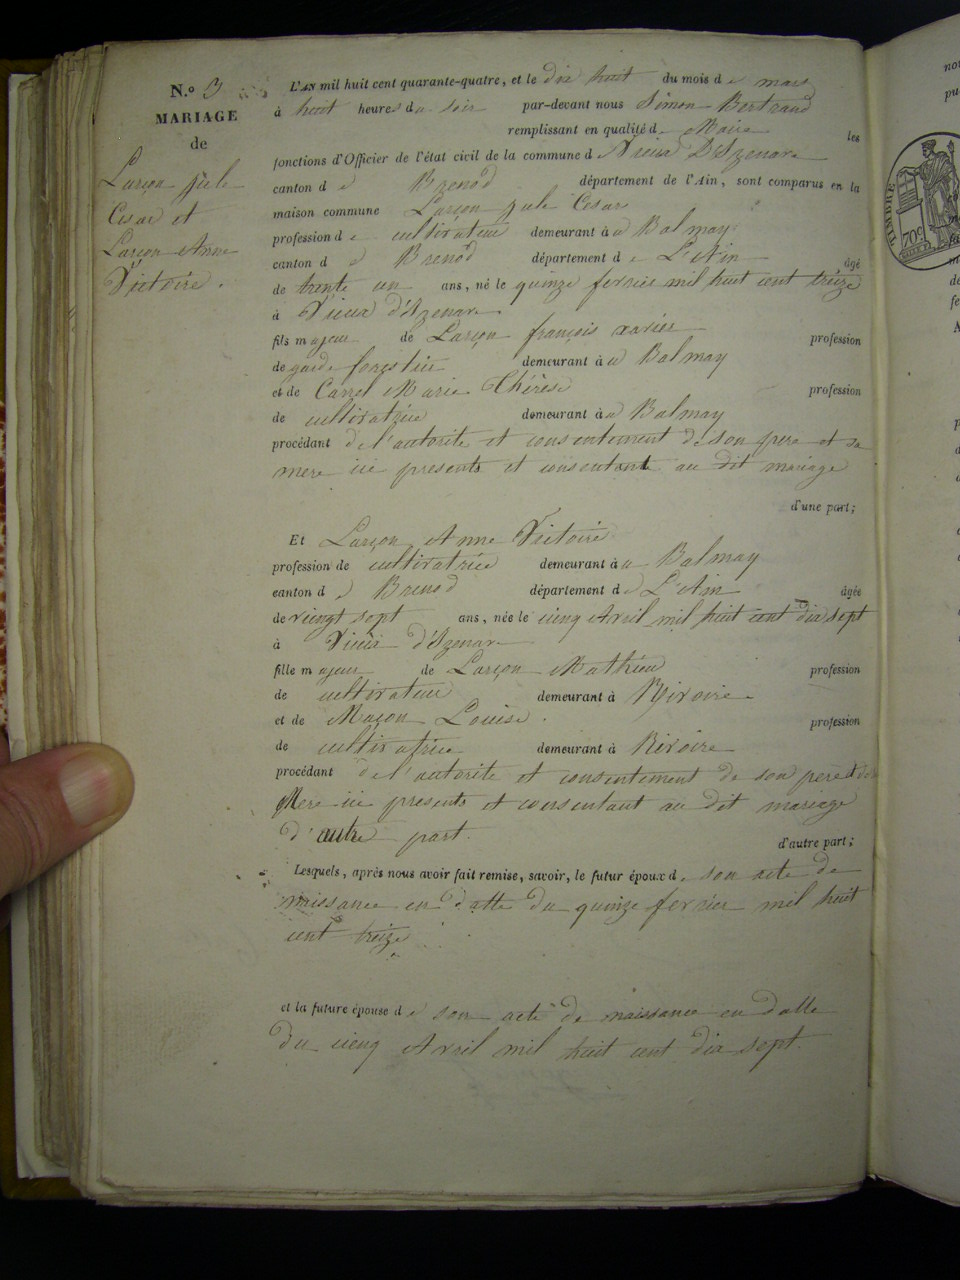 N.º 3
MARIAGE
de
Larçon jule
Cesar et
Larçon Anne
Victoire.
L'AN mil huit cent quarante-quatre, et le dix huit du mois de mars
à huit heures du soir par-devant nous Simon Bertrand
remplissant en qualité de Maire les
fonctions d'Officier de l'état civil de la commune d Vieux D'Izenave
canton de Brenod département de l'Ain, sont comparus en la
maison commune Larçon jule Cesar
profession de cultivateur demeurant à Balmay
canton de Brenod département de L'Ain âgé
de trente un ans, né le quinze fevrier mil huit cent treize
à Vieux d'Izenave
fils majeur de Larçon françois xavier profession
de garde forestier demeurant à Balmay
et de Carrel Marie Thérèse profession
de cultivatrice demeurant à Balmay
procédant de l'autorite et consentement de son pere et sa
mere ici presents et consentant au dit mariage
d'une part;
Et Larçon Anne Victoire
profession de cultivatrice demeurant à Balmay
canton de Brenod département de L'Ain âgée
de vingt sept ans, née le cinq Avril mil huit cent dix sept
à Vieux d'Izenave
fille majeur de Larçon Mathieu profession
de cultivateur demeurant à Rivoire
et de Maçon Louise profession
de cultivatrice demeurant à Rivoire
procédant de l'autorite et consentement de son pere et de sa
Mere ici presents et consentant au dit mariage
d'autre part.
d'autre part;
Lesquels, après nous avoir fait remise, savoir, le futur époux de son acte de
naissance en datte du quinze fevrier mil huit
cent treize
et la future épouse de son acte de naissance en datte
du cinq Avril mil huit cent dix sept.
TIMBRE
70c